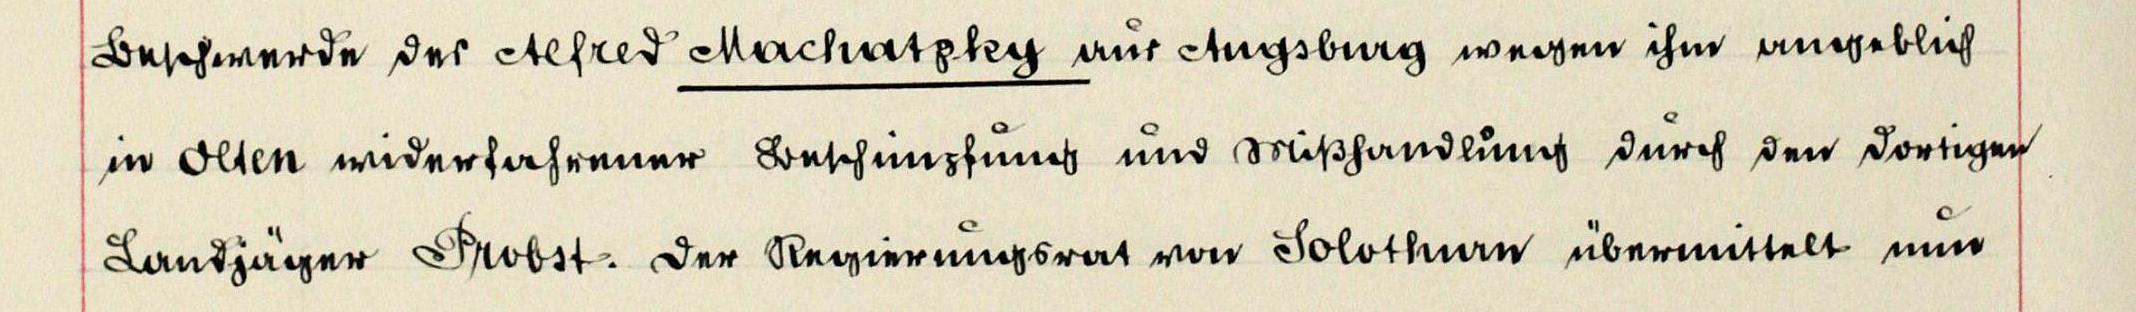 Beschwerde des Alfred Machatzky aus Augsburg wegen ihm angeblich
in Olten widerfahrener Beschimpfung und Mißhandlung durch den dortigen
Landjäger Probst. Der Regierungsrat von Solothurn übermittelt nun